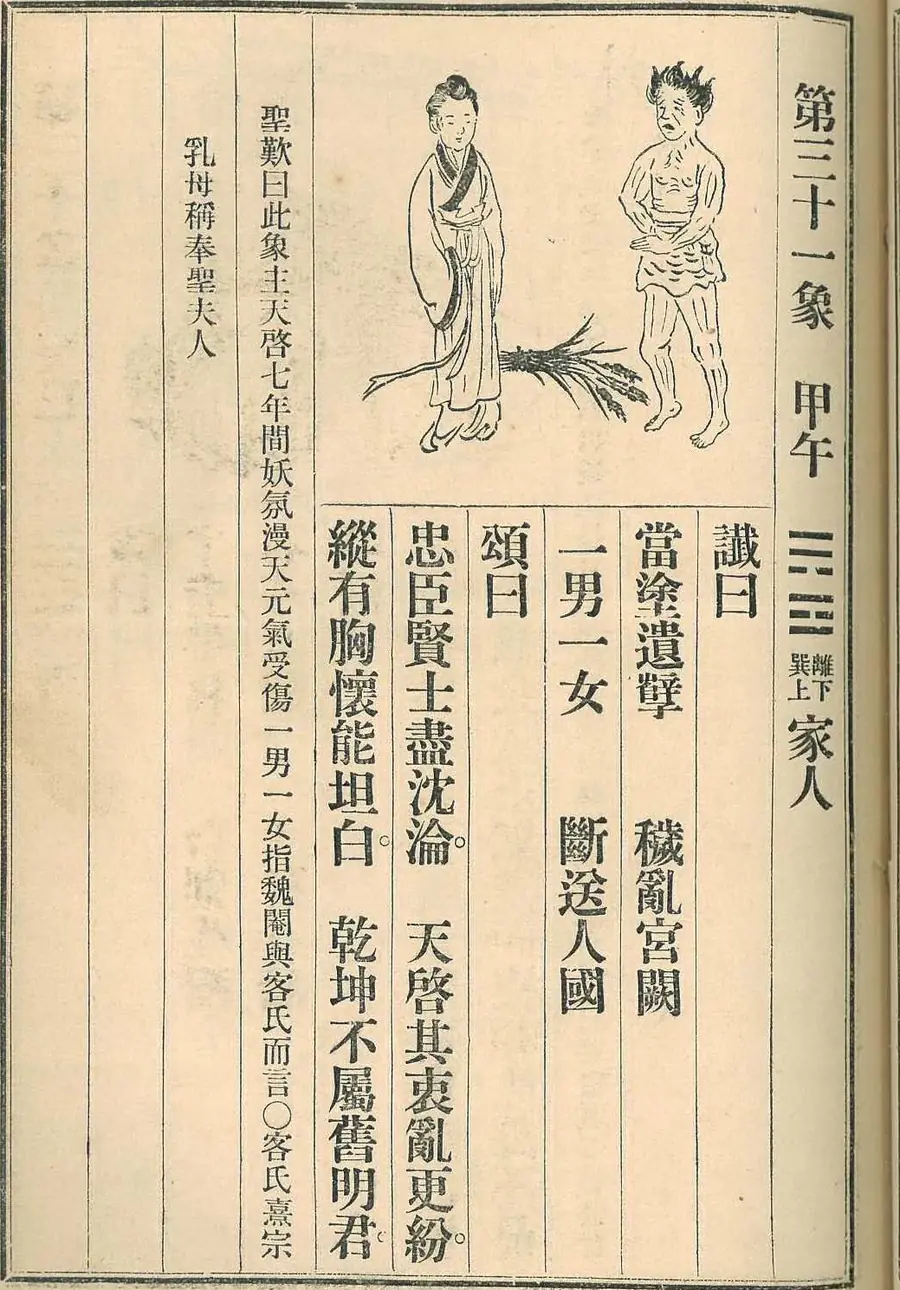 第三十一象 甲午 ䷤ 離下 巽上 家人
讖曰
當塗遺孽 穢亂宮闕
一男一女 斷送人國
頌曰
忠臣賢士盡沈淪。 天啓其衷亂更紛。
縱有胸懷能坦白。 乾坤不屬舊明君。
聖歎曰此象主天啓七年間妖氛漫天元氣受傷一男一女指魏閹與客氏而言〇客氏熹宗
乳母稱奉聖夫人